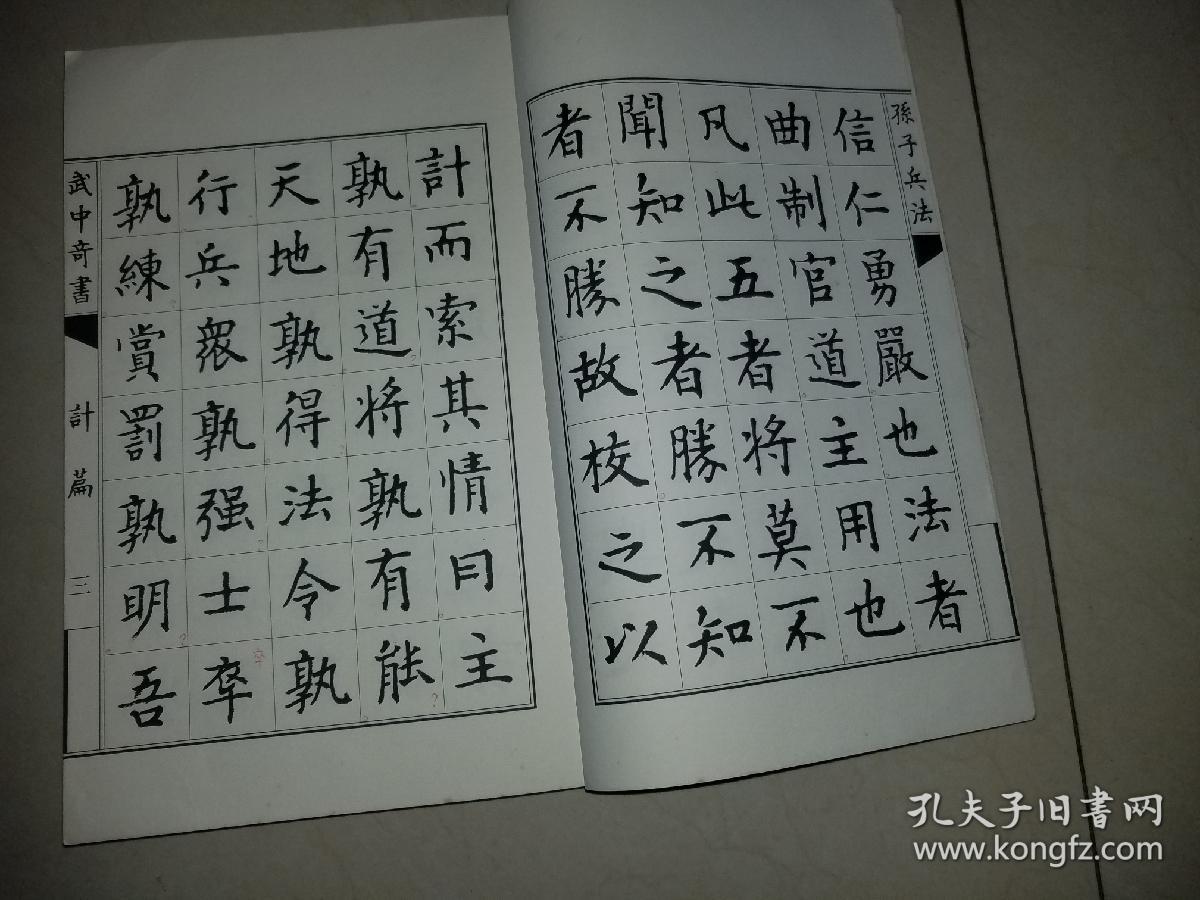 孫子兵法
信仁勇嚴也法者
曲制官道主用也
凡此五者將莫不
聞知之者勝不知
者不勝故校之以
計而索其情曰主
孰有道將孰有能
天地孰得法令孰
行兵衆孰强士卒
卒
孰練賞罰孰明吾
武中奇書
計篇
三
孔夫子旧書网
www.kongfz.com